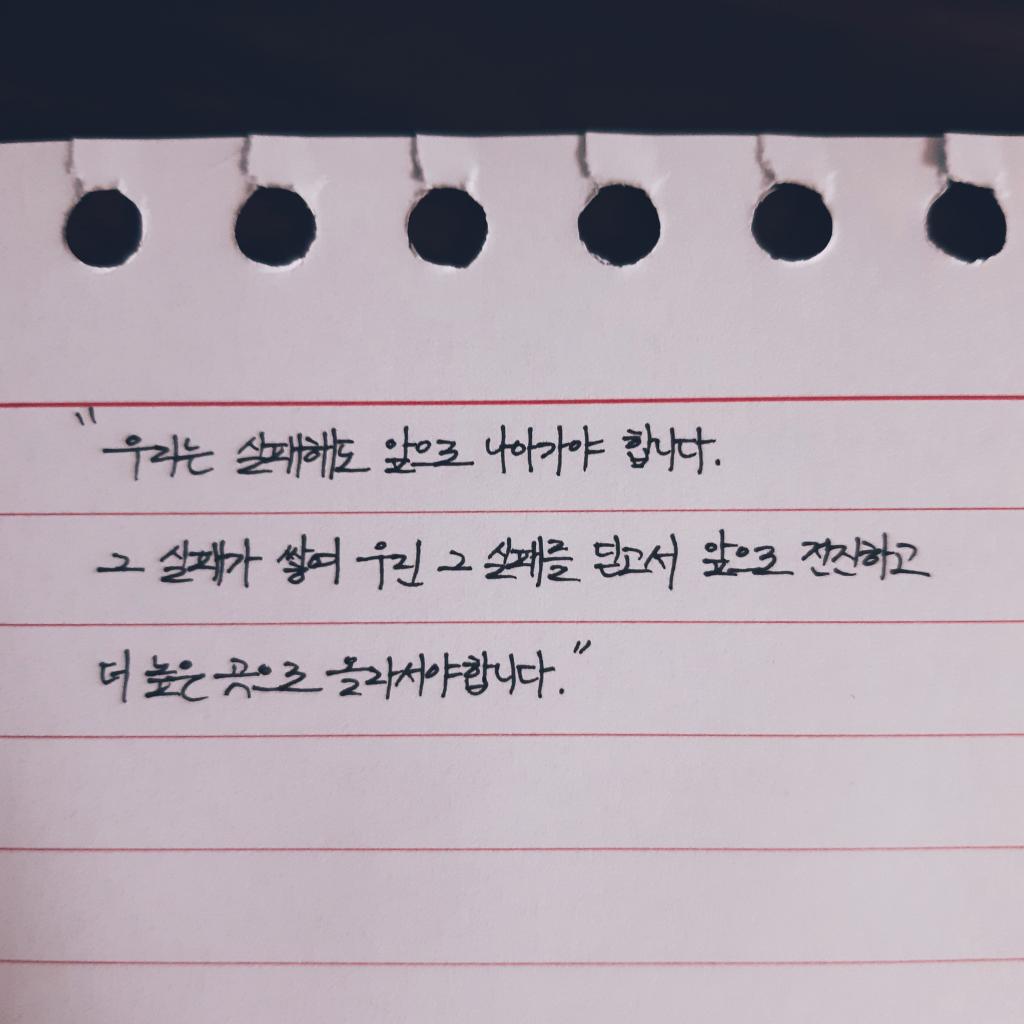 "우리는 실패해도 앞으로 나아가야 합니다.
그 실패가 쌓여 우린 그 실패를 딛고서 앞으로 전진하고
더 높은 곳으로 올라서야합니다."